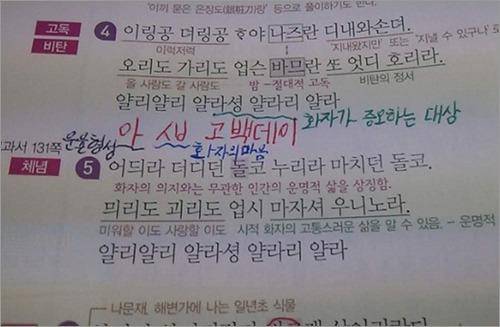 "이끼 묻은 은장도(銀粧刀)랑" 등으로 풀이하기도 한다.
고독
비탄
4 이링공 뎌링공 ᄒᆞ야 나즈란 디내와손뎌.
이럭저럭
'지내왔지만' 또는 '지낼 수 있구나'
오리도 가리도 업슨 바므란 ᄯᅩ 엇디 호리라.
올 사람도 갈 사람도
밤-절대적 고독
비탄의 정서
얄리얄리 얄라셩 얄라리 얄라
화자가 증오하는 대상
운율형성
아 싀브 고백데이
화자의마음
과서 131쪽
체념
5 어듸라 더디던 돌코 누리라 마치던 돌코.
화자의 의지와는 무관한 인간의 운명적 삶을 상징함.
믜리도 괴리도 업시 마자셔 우니노라.
미워할 이도 사랑할 이도
시적 화자의 고통스러운 삶을 알 수 있음. – 운명적
얄리얄리 얄라셩 얄라리 얄라
나문재. 해변가에 나는 일년초 식물